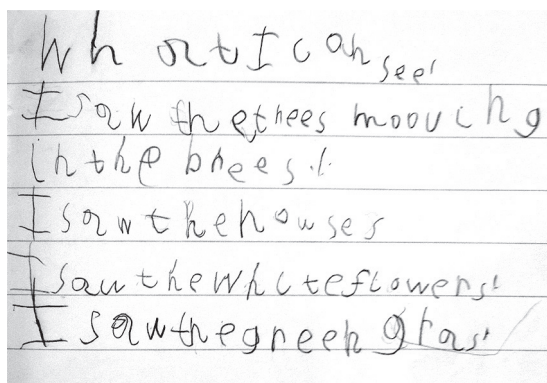 What I can see.
I saw the trees mooving
in the brees.
I saw the howses
I saw the white flowers.
I saw the green gras.